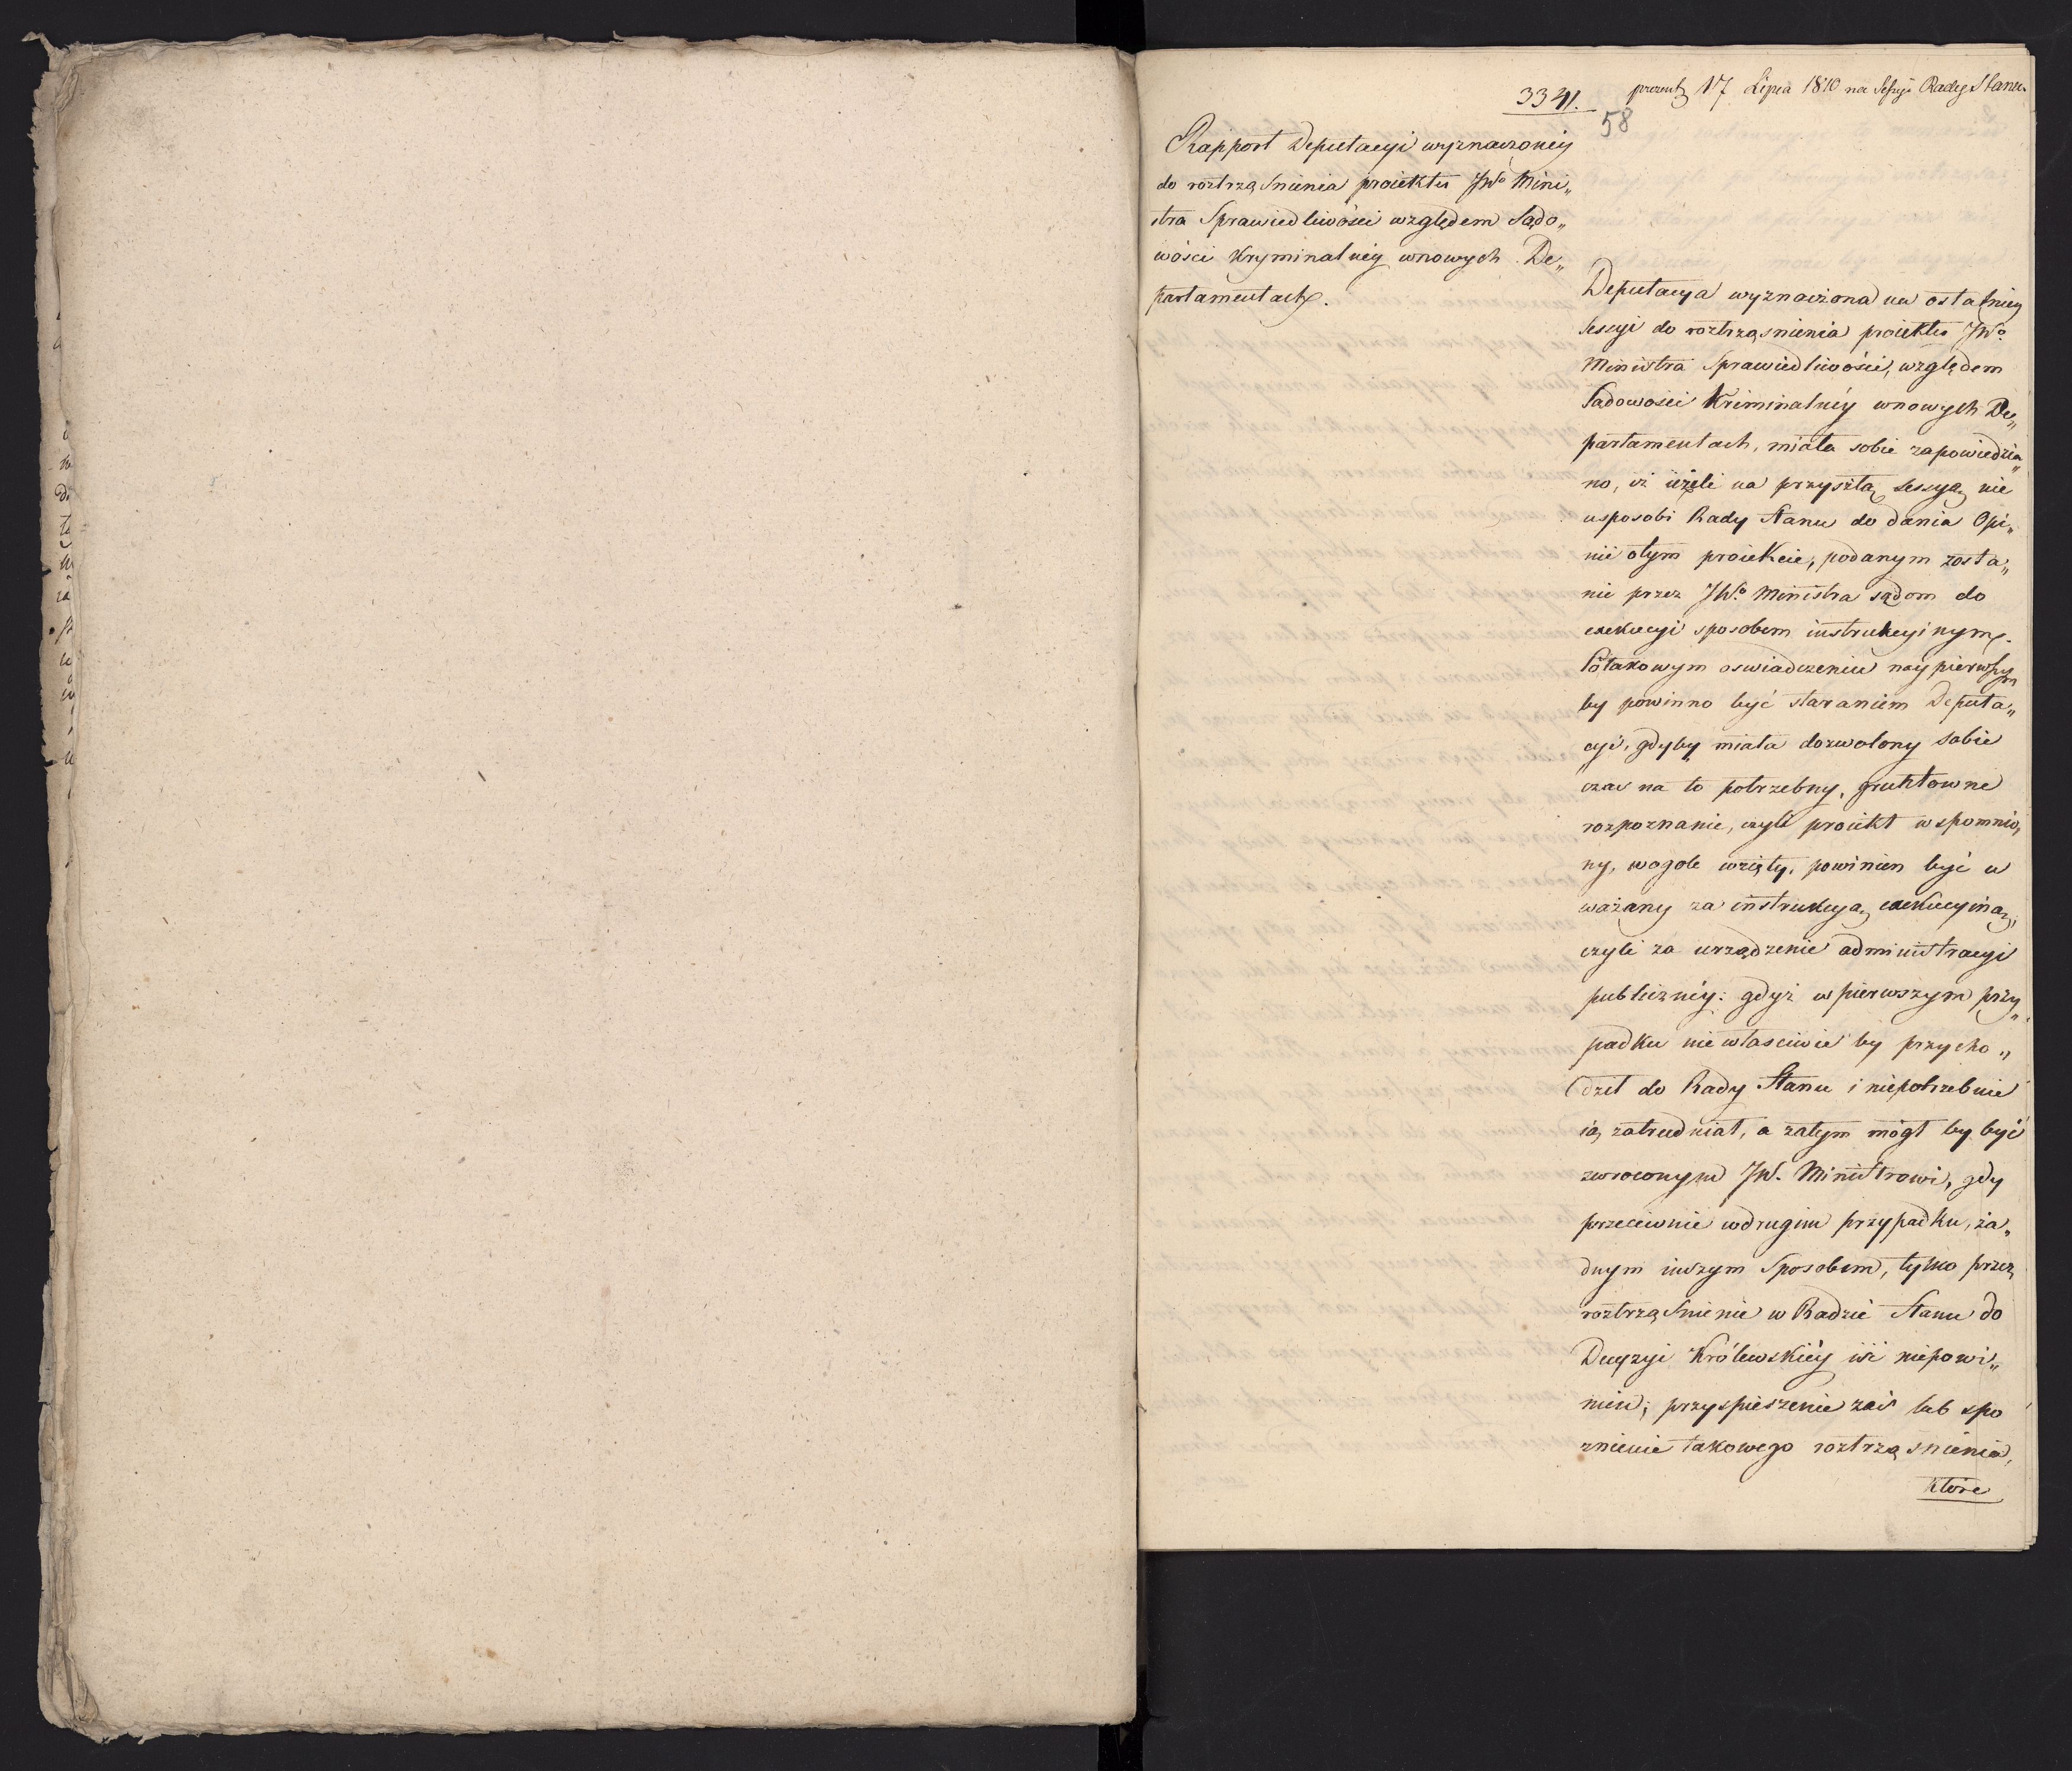 prezent 17 Lipca 1810 na Sessyi Rady Stanu
3341.
58
Rapport Deputacyi wyznaczoney
do roztrząśnienia proiektu JWo Mini„
stra Sprawiedliwości względem Sądo„
wości Kryminalney wnowych De„
partamentach.
Deputacya wyznaczona na ostatniey
sessyi do roztrząśnienia proiektu JWo
Ministra Sprawiedliwości, względem
Sądowości Kriminalnéy wnowych De„
partamentach, miała sobie zapowiedzia„
no, iż ieżeli na przyszłą sessyą nie
usposobi Rady Stanu do dania Opi„
nii otym proiekcie, podanym zosta„
nie przez JWo Ministra sądom do
exekucyi sposobem instrukcyinym.
Potakowym oswiadczeniu naypierwszym
by powinno być staraniem Deputa„
cyi, gdyby miała dozwolony sobie
czas na to potrzebny, gruntowne
rozpoznanie, czyli proiekt wspomnio„
ny, wogole wzięty, powinien być u
ważany za instrukcyą exekucyiną,
czyli za urządzenie administracyi
publicznéy: gdyż w pierwszym przy„
padku niewłaściwie by przycho„
dził do Rady Stanu i niepotrzebnie
ią zatrudniał, a zatym mógł by być
zwroconym JW. Ministrowi, gdy
przeciwnie wdrugim przypadku, ża„
dnym inszym Sposobem, tylko przez
roztrząśnienie w Radzie Stanu do
Decyzyi Królewskiéy iść niepowi„
nien; przyspieszenie zaś lub spo
znienie takowego roztrząśnienia,
które